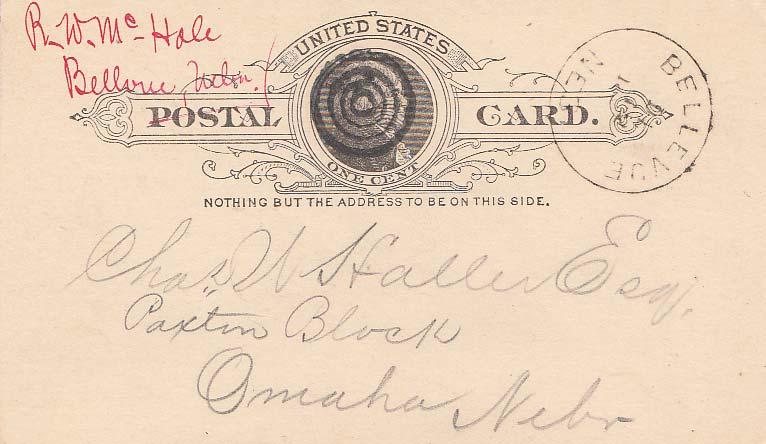 R. W. Mc Hale
Bellevue, Nebr.
UNITED STATES
POSTAL CARD.
ONE CENT
NOTHING BUT THE ADDRESS TO BE ON THIS SIDE.
BELLEVUE
NEB
Chas. W Haller Esq.
Paxton Block
Omaha Nebr